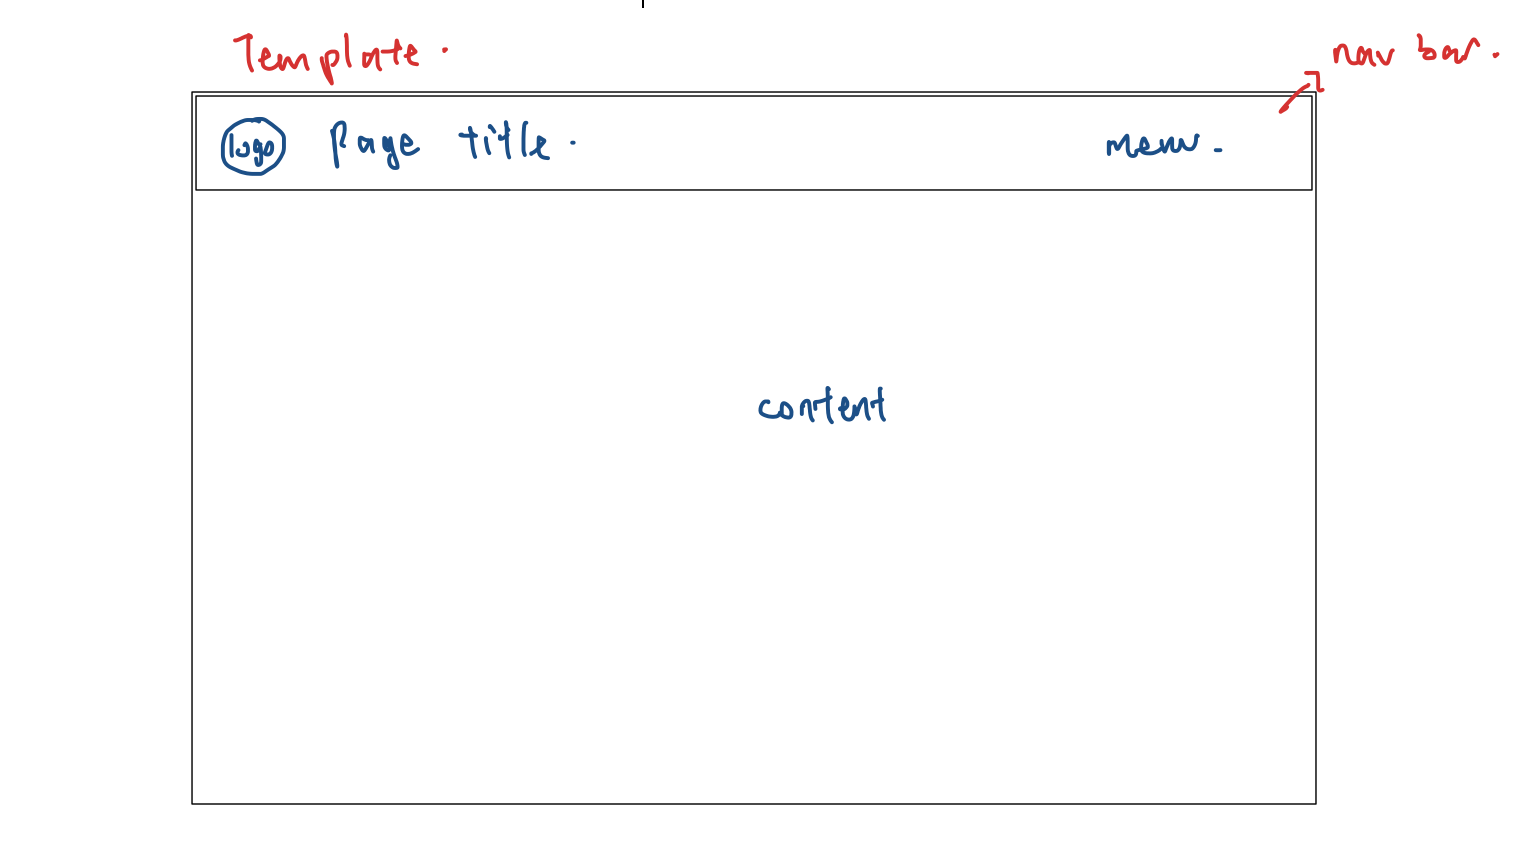 Template.
nav bar.
logo Page title. menu.
content